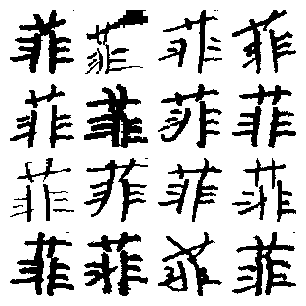 菲菲菲菲
菲菲菲菲
菲菲菲菲
菲菲菲菲